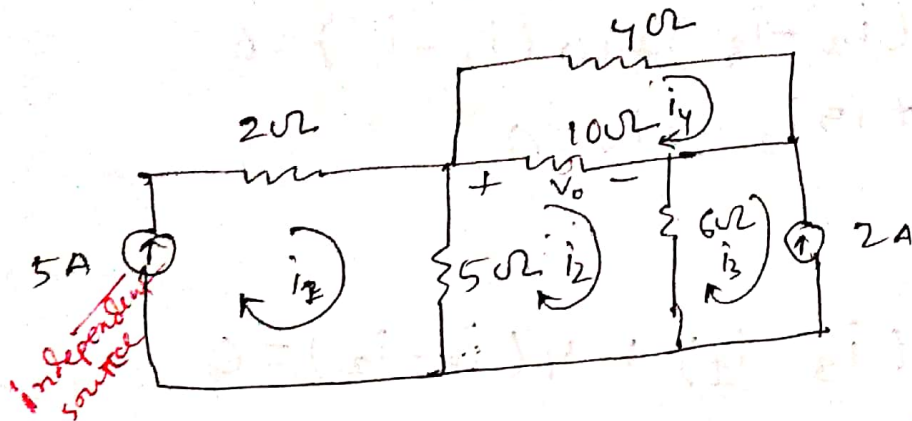 4Ω
2Ω
10Ω i4
+ V₀ −
5A
i1
5Ω i2
6Ω
i3
2A
Independent
source